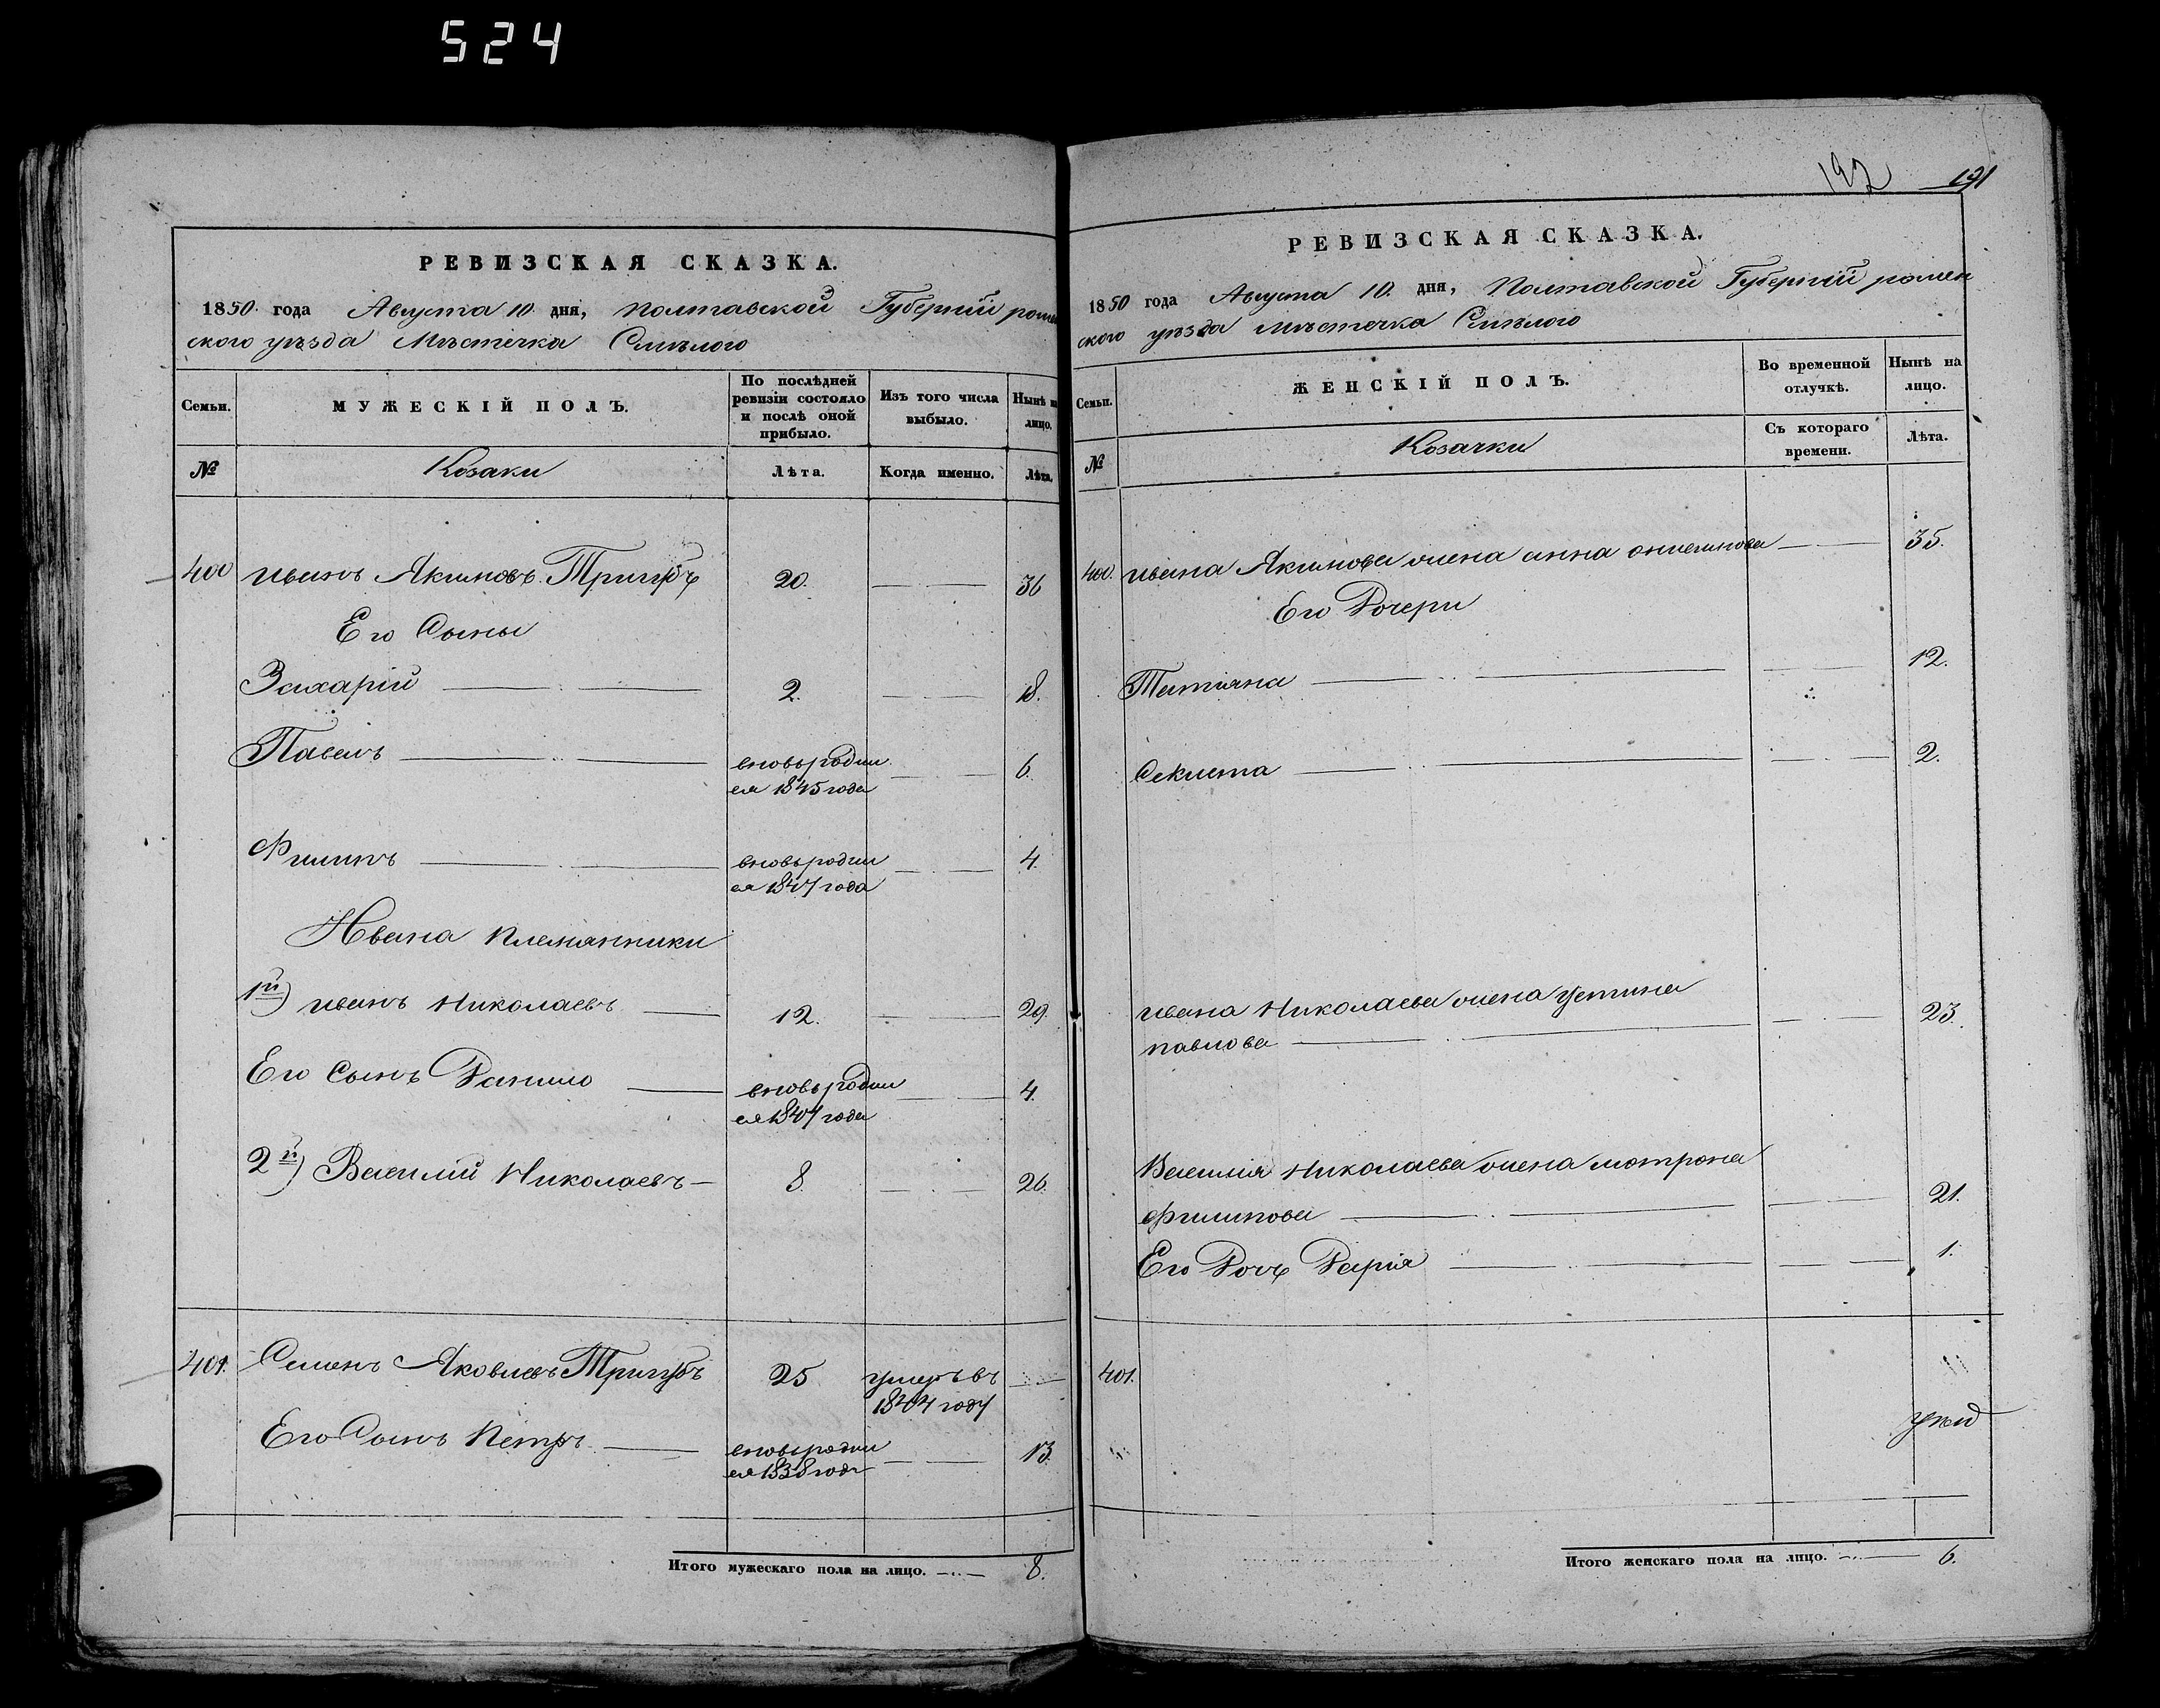 524
РЕВИЗСКАЯ СКАЗКА.
1850 года Августа 10 дня, Полтавской Губерніи ромен
ского уѣзда Мѣстечка Смѣлого
Семьи.
МУЖЕСКІЙ ПОЛЪ.
По послѣдней ревизіи состояло и послѣ оной прибыло.
Изъ того числа выбыло.
Нынѣ на лицо.
№
Козаки
Лѣта.
Когда именно.
Лѣта.
400 Иванъ Якимовъ Тригубъ 20. 36
Его Сыны
Захарій 2. 18.
Павелъ вновь родил 6.
ся 1845 года
Филипъ вновь родил 4.
ся 1847 года
Ивана племянники
1й) Иванъ Николаевъ 12. 29.
Его Сынъ Данило вновь родил 4.
ся 1847 года
2й) Василій Николаевъ 8. 26.
401. Семенъ Яковлевъ Тригубъ 25 умеръ въ
1844 году
Его Сынъ Петръ вновь родил 13.
ся 1838 года
Итого мужескаго пола на лицо. 8.
192 191
РЕВИЗСКАЯ СКАЗКА.
1850 года Августа 10. дня, Полтавской Губерніи ромен
ского уѣзда мѣстечка Смѣлого
Семьи.
ЖЕНСКІЙ ПОЛЪ.
Во временной отлучкѣ.
Нынѣ на лицо.
№
Козачки
Съ котораго времени.
Лѣта.
400. Ивана Якимова жена Анна 35.
Его Дочери
Татіяна 12.
Секлета 2.
Ивана Николаева жена Устина
павлова 23.
Василія Николаева жена мотрона
филипова 21.
Его Дочь Дарія 1.
401.
Итого женскаго пола на лицо. 6.